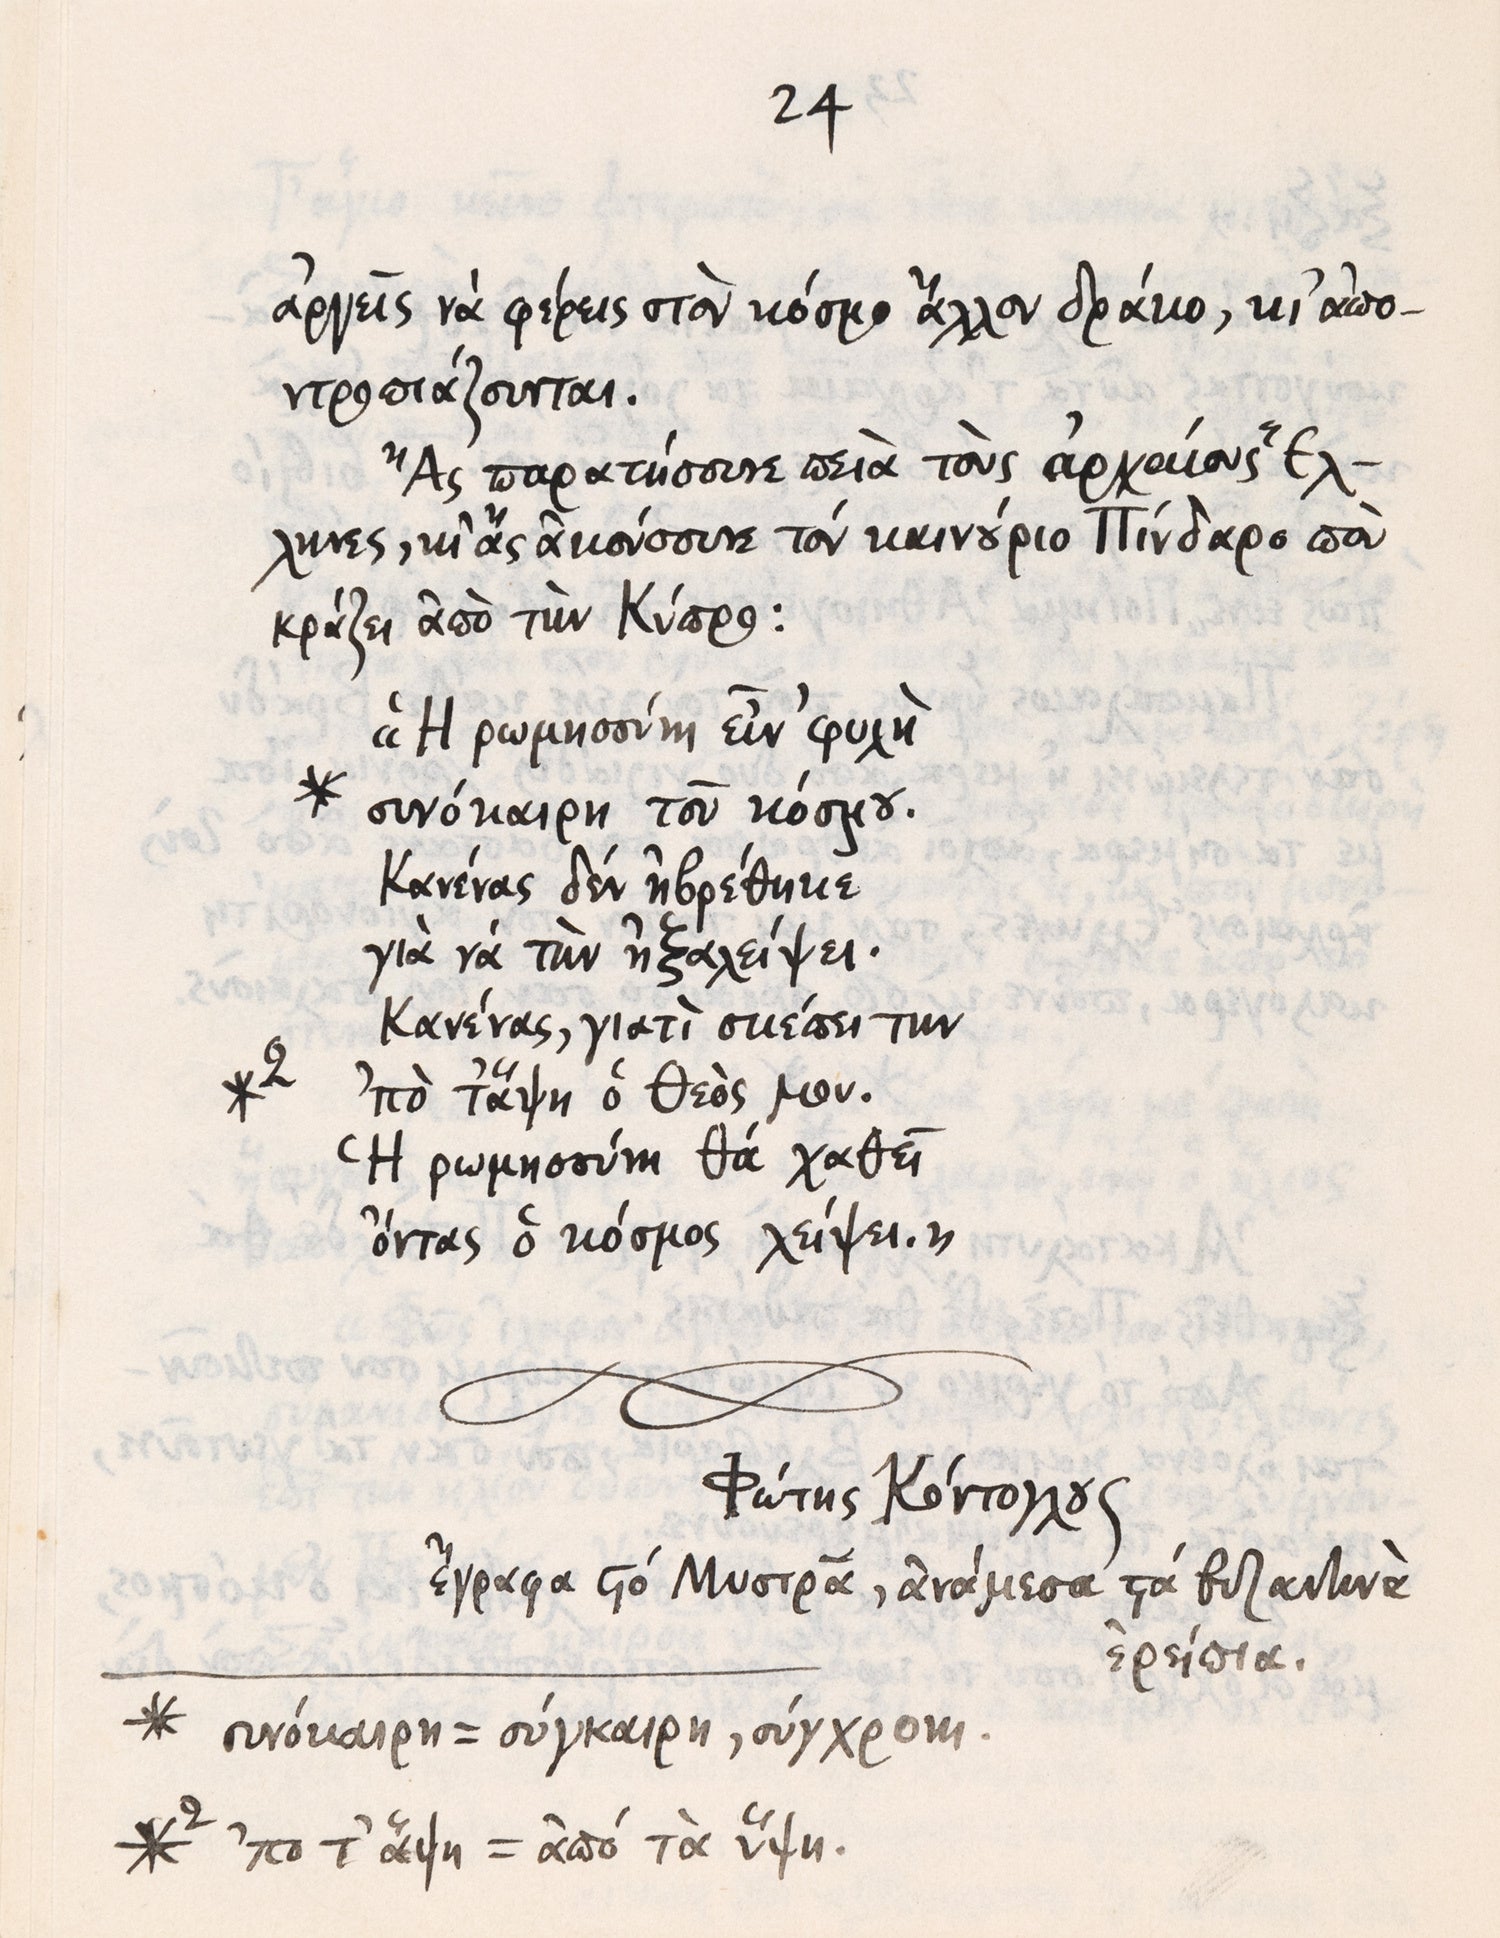 24
ἀργεῖς νά φέρεις στὸν κόσμο ἄλλον δράκο, κι' ἀπο-
ντροπιάζουνται.
Ἄς παρατήσουνε πειὰ τοὺς ἀρχαίους Ἕλ-
ληνες, κι' ἄς ἀκούσουνε τόν καινούριο Πίνδαρο ποὺ
κράζει ἀπὸ τὴν Κύπρο:
«Ἡ ρωμηοσύνη εἶν' φυλὴ
* συνόκαιρη τοῦ κόσμου.
Κανένας δέν ἠβρέθηκε
γιὰ νά τὴν ἠξαλείψει.
Κανένας, γιατὶ σκέπει την
*2 'πὸ τἄψη ὁ Θεὸς μου.
Ἡ ρωμηοσύνη θά χαθεῖ
ὄντας ὁ κόσμος λείψει.»
Φώτης Κόντογλους
ἔγραφα στό Μυστρᾶ, ἀνάμεσα στά βυζαντινὰ
ἐρείπια.
* συνόκαιρη = σύγκαιρη, σύγχρονη.
*2 'πο τ' ἅψη = ἀπό τὰ ὕψη.